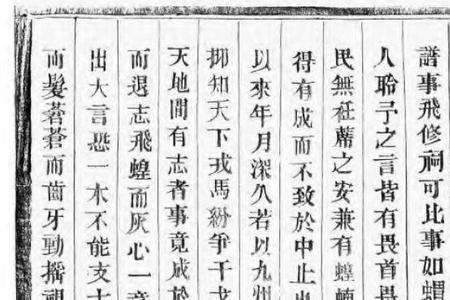 譜事飛修祠可比事如蝟
人聆予之言皆有畏首畏
民無衽蓆之安兼有蝗蝻
得有成而不致於中止
以來年月深久若以九州
抑知天下戎馬紛爭干戈
天地間有志者事竟成於
而退志飛蝗而灰心一
出大言恐一木不能支大
而髮蒼蒼而齒牙動搖視